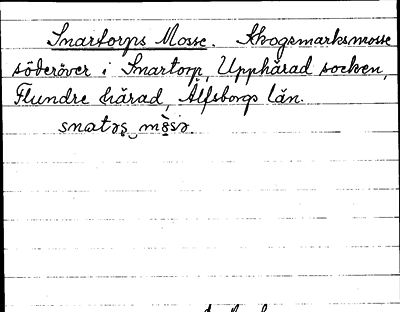 Snartorps Mosse. Skogsmarksmosse
söderöver i Snartorp, Upphärad socken,
Flundre härad, Älfsborgs län.